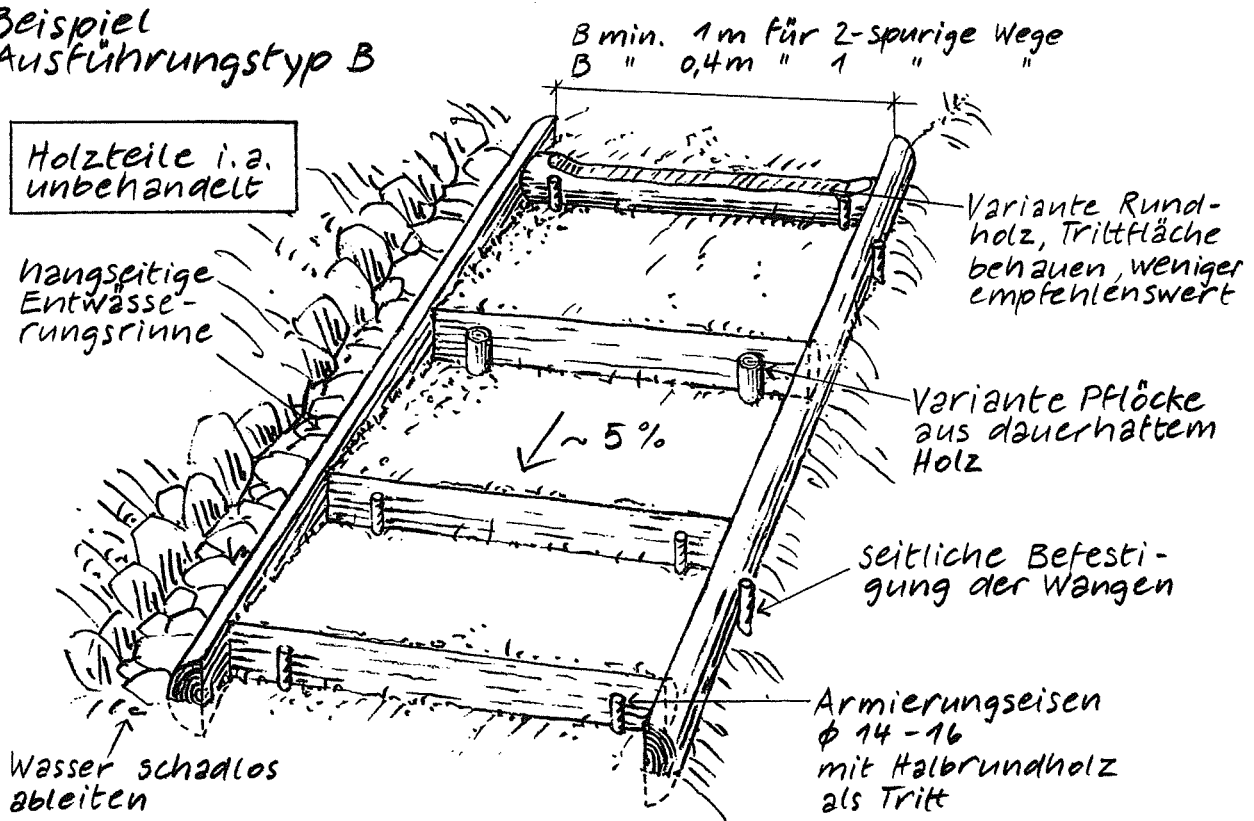 Beispiel
Ausführungstyp B
B min. 1m für 2-spurige Wege
B " 0,4m " 1 " "
Holzteile i.a.
unbehandelt
hangseitige
Entwässe-
rungsrinne
Variante Rund-
holz, Trittfläche
behauen, weniger
empfehlenswert
Variante Pflöcke
aus dauerhaftem
Holz
~ 5 %
seitliche Befesti-
gung der Wangen
Armierungseisen
ϕ 14 - 16
mit Halbrundholz
als Tritt
Wasser schadlos
ableiten